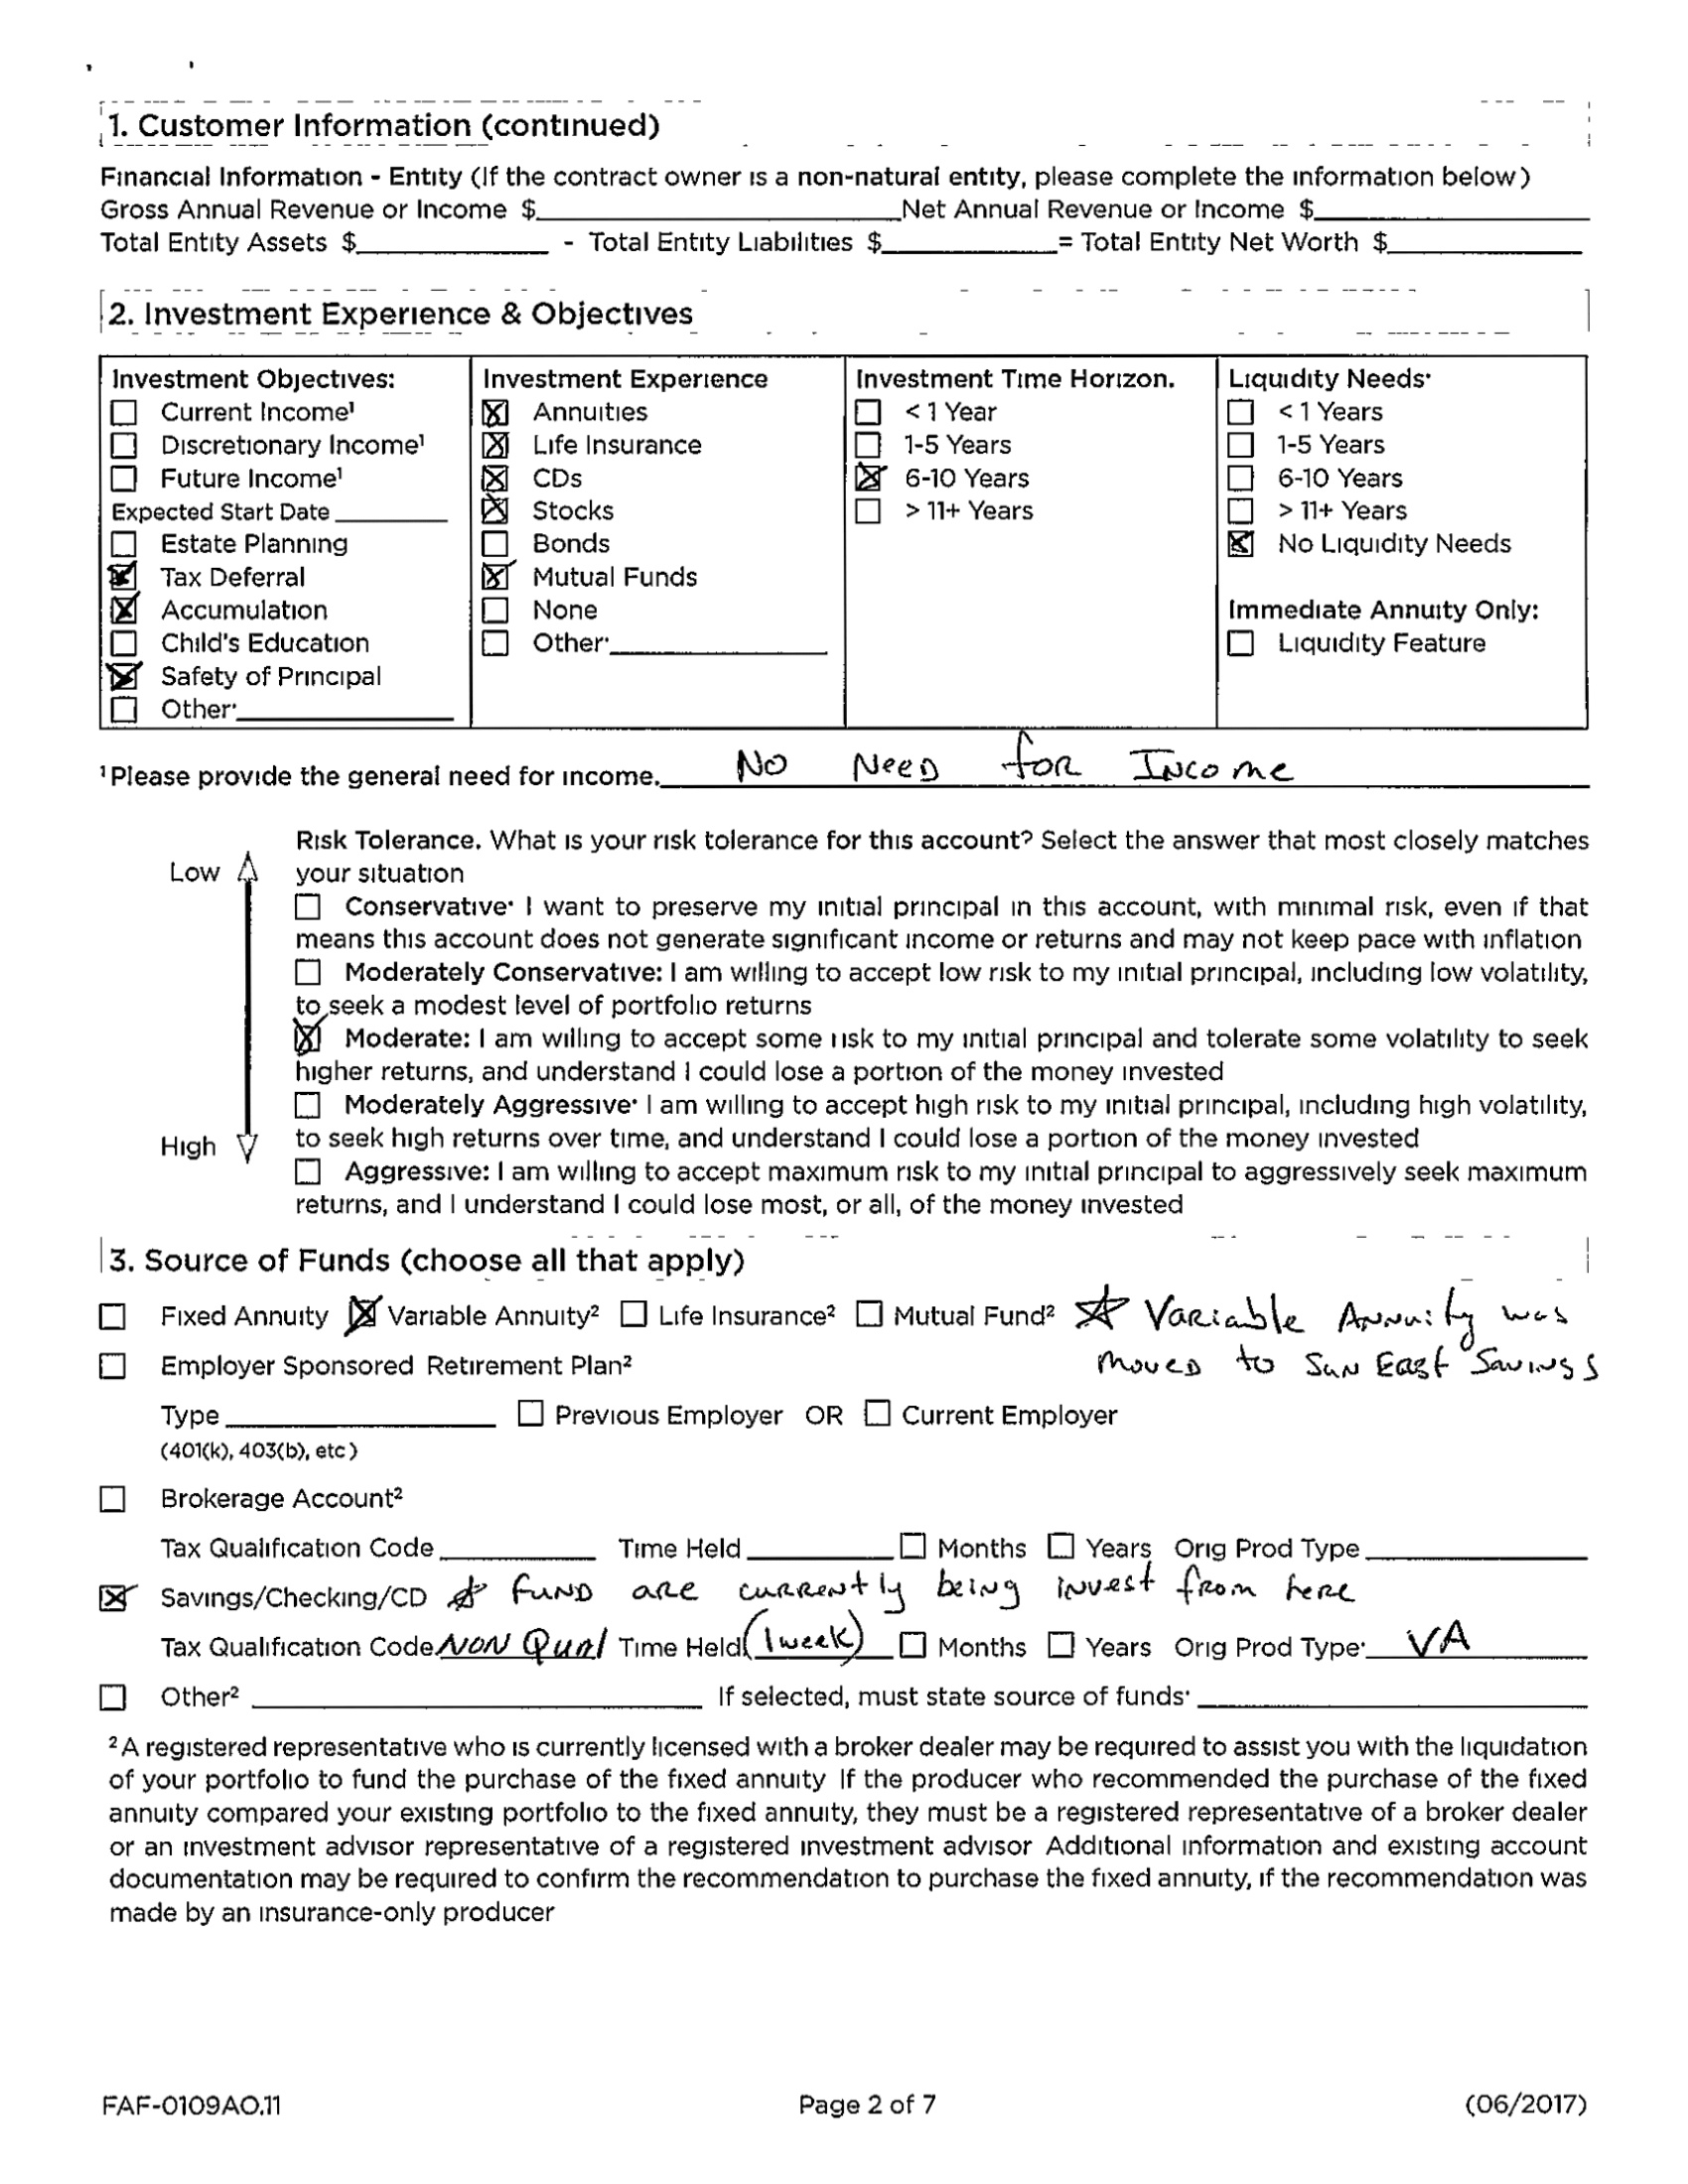 1. Customer Information (continued)
Financial Information - Entity (If the contract owner is a non-natural entity, please complete the information below)
Gross Annual Revenue or Income $ Net Annual Revenue or Income $
Total Entity Assets $ - Total Entity Liabilities $ = Total Entity Net Worth $
2. Investment Experience & Objectives
Investment Objectives:
Current Income¹
Discretionary Income¹
Future Income¹
Expected Start Date
Estate Planning
Tax Deferral
Accumulation
Child's Education
Safety of Principal
Other:
Investment Experience
Annuities
Life Insurance
CDs
Stocks
Bonds
Mutual Funds
None
Other:
Investment Time Horizon.
< 1 Year
1-5 Years
6-10 Years
> 11+ Years
Liquidity Needs:
< 1 Years
1-5 Years
6-10 Years
> 11+ Years
No Liquidity Needs
Immediate Annuity Only:
Liquidity Feature
¹Please provide the general need for income. No Need for Income
Risk Tolerance. What is your risk tolerance for this account? Select the answer that most closely matches
Low your situation
Conservative: I want to preserve my initial principal in this account, with minimal risk, even if that
means this account does not generate significant income or returns and may not keep pace with inflation
Moderately Conservative: I am willing to accept low risk to my initial principal, including low volatility,
to seek a modest level of portfolio returns
Moderate: I am willing to accept some risk to my initial principal and tolerate some volatility to seek
higher returns, and understand I could lose a portion of the money invested
Moderately Aggressive: I am willing to accept high risk to my initial principal, including high volatility,
High to seek high returns over time, and understand I could lose a portion of the money invested
Aggressive: I am willing to accept maximum risk to my initial principal to aggressively seek maximum
returns, and I understand I could lose most, or all, of the money invested
3. Source of Funds (choose all that apply)
Fixed Annuity Variable Annuity² Life Insurance² Mutual Fund² Variable Annuity was
Employer Sponsored Retirement Plan² moved to Sun East Savings
Type Previous Employer OR Current Employer
(401(k), 403(b), etc)
Brokerage Account²
Tax Qualification Code Time Held Months Years Orig Prod Type
Savings/Checking/CD Fund are currently being invest from here
Tax Qualification Code NON Qual Time Held (1 week) Months Years Orig Prod Type: VA
Other² If selected, must state source of funds:
²A registered representative who is currently licensed with a broker dealer may be required to assist you with the liquidation
of your portfolio to fund the purchase of the fixed annuity If the producer who recommended the purchase of the fixed
annuity compared your existing portfolio to the fixed annuity, they must be a registered representative of a broker dealer
or an investment advisor representative of a registered investment advisor Additional information and existing account
documentation may be required to confirm the recommendation to purchase the fixed annuity, if the recommendation was
made by an insurance-only producer
FAF-0109AO.11 Page 2 of 7 (06/2017)